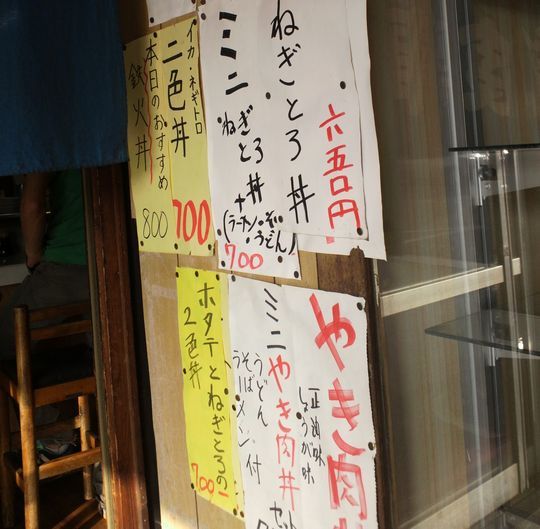 ねぎとろ丼
六五〇円
ミニ
ねぎとろ丼
+
(ラーメン・そば
うどん)
700
イカ・ネギトロ
二色丼
700
本日のおすすめ
鉄火丼
800
やき肉
正油味
しょうが味
ミニやき肉丼
セット
うどん
そば
ラーメン
付
ホタテとねぎとろの
2色丼
700